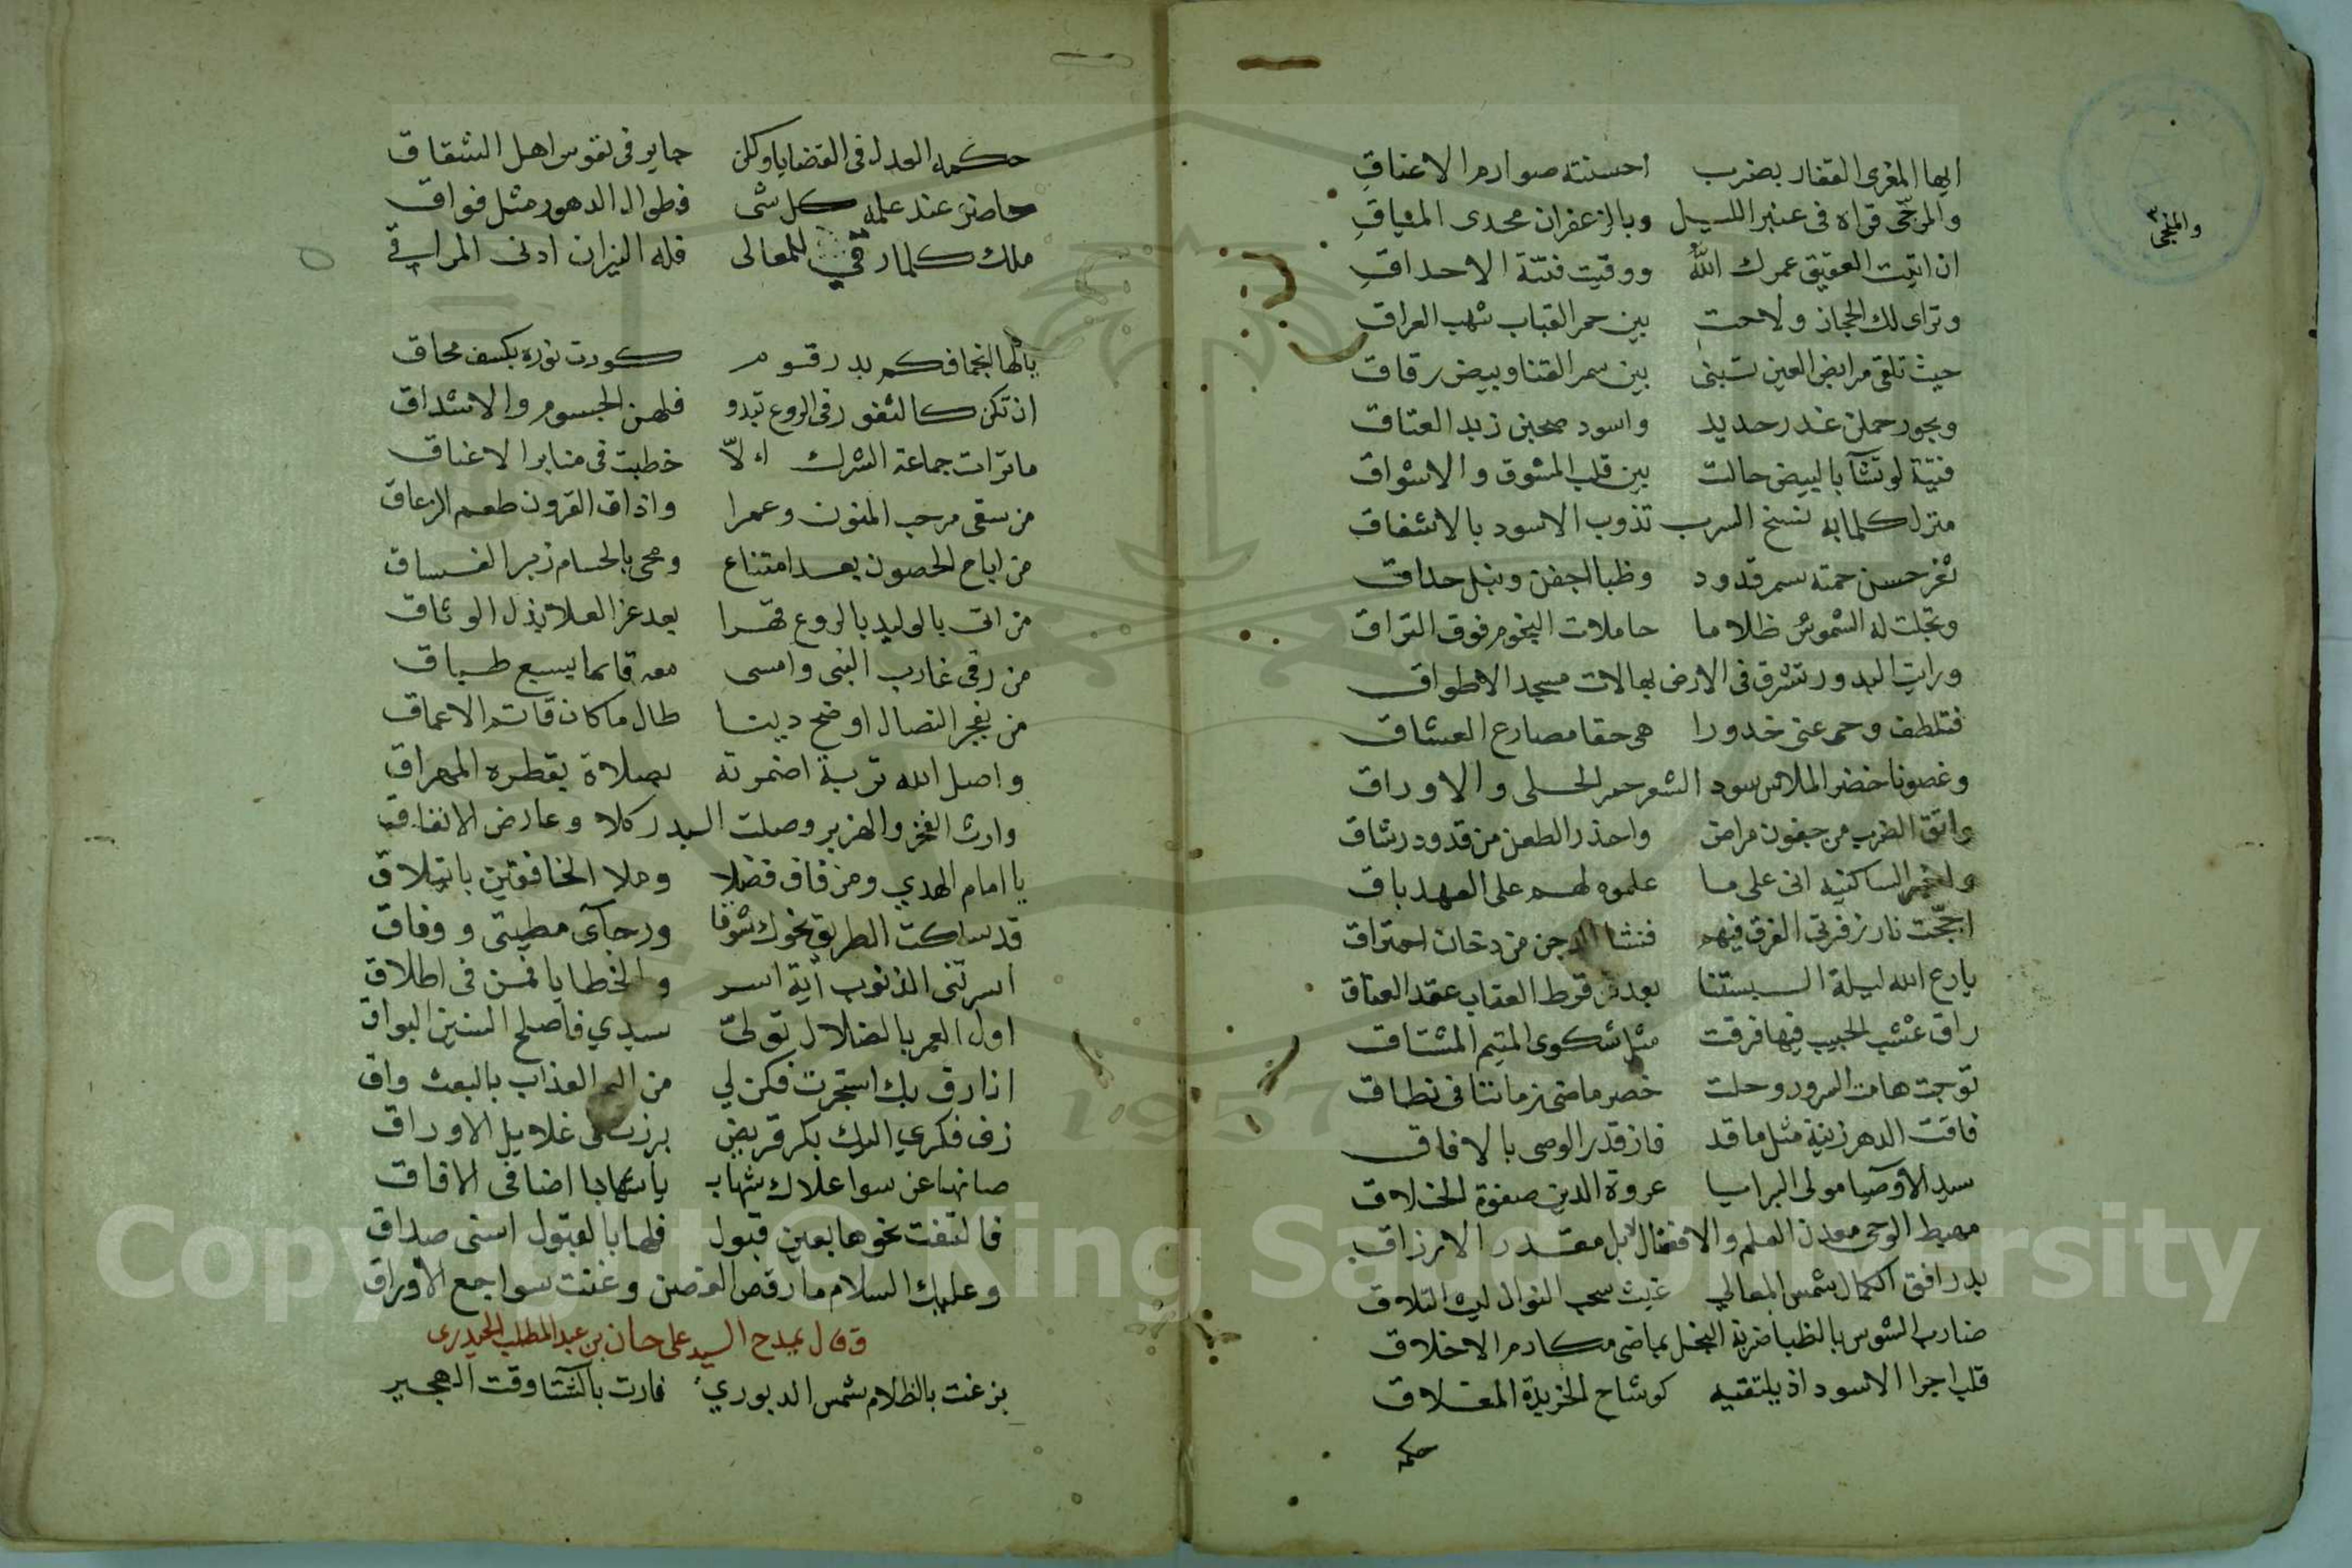 ايها المغرى القفار بضرب احسنته صوارم الاعناق
والمرجى قراه فى عنبر الليل وبالزعفران محدى المياق
والمنجى
ان اتيت العقيق عمرك الله ووقيت فتنة الاحداق
وتراى لك الحجاز ولاحت بين حمر القباب شهب العراق
حيث تلقى مرابض العين تبنى بين سمر القنا وبيض رقاق
وبحور حملن غدر حديد واسود صحبن زبد العتاق
فتية لو تشآ بالبيض حالت بين قلب المشوق والاشواق
منزل كلما به نسخ السرب تذوب الاسود بالاشفاق
ثغر حسن حمته سمر قدود وظبا اجفن ونبل حداق
وتجلت له الشموس ظلاما حاملات النجوم فوق التراق
ورايت البدور تشرق فى الارض بهالات مسجد الاطواق
فتلطف وحى عنى خدورا هى حقا مصارع العشاق
وغصونا خضر الملابس سود الشعر حمر الحلى والاوراق
واتق الضرب من جفون مراض واحذر الطعن من قدود رشاق
واخبر الساكنيه انى على ما علموه لهم على العهد باق
اججت نار زفرتى الفرق فيهم فنشا الدجن من دخان احتراق
يا رع الله ليلة البستنا بعد قرط العقاب عقد العناق
راق عتب الحبيب فيها فرقت مثل شكوى المتيم المشتاق
توجت هامة السرور وحلت خصر ماضى زماننا فى نطاق
فاقت الدهر زينة مثل ما قد فاز قدر الوصى بالافاق
سيد الاوصيا مولى البرايا عروة الدين صفوة الخلاق
مهبط الوحى معدن العلم والافضال لا بل مقدر الارزاق
بدر افق الكمال شمس المعالي غيث سحب النوال ليث التلاق
ضارب الشوس بالظبا ضربة البخل بماضى مكارم الاخلاق
قلب اجرا الاسود اذ يلتقيه كوشاح الخريدة المقلاق
حكمه
حكمه العدل فى القضايا ولكن جاير فى نفوس اهل الشقاق
حاضر عند علمه كل شى فطوال الدهور مثل فواق
ملك كلما رقي للمعالى فله النيران ادنى المراقي
يالها انجما فكم بدر قوم كورت نوره بكسف محاق
ان تكن كالثغور فى الروع تبدو فلهن الجسوم والاشداق
ما ترات جماعة الشرك الا خطبت فى منابر الاعناق
من سقى مرحب المنون وعمرا واذاق القرون طعم الزعاق
من اباح الحصون بعد امتناع ومحى بالحسام زبر الفساق
من اتى بالوليد بالروع قهرا بعد عز العلا بذل الوثاق
من رقى غارب النبى وامسى معه قائما بسبع طباق
من بفجر النصال اوضح دينا طال ما كان قاتم الاعماق
واصل الله تربة اضمرته بصلاة بقطره المهراق
وارث الفخر والهزبر وصلت البدر كلا وعارض الانفاق
يا امام الهدي ومن فاق فضلا وملا الخافقين بائتلاق
قد سلكت الطريق نحوك شوقا ورجآى مطيتى ورفاق
اسرتنى الذنوب أية اسر والخطايا فمن فى اطلاق
اول العمر بالضلال تولى سيدي فاصلح السنين البواق
انا رق بك استجرت فكن لي من اليم العذاب بالبعث واق
زف فكري اليك بكر قريض برزت فى غلايل الاوراق
صانها عن سوا علاك شهاب يا شهابا اضا فى الافاق
فالتفت نحوها بعين قبول فلها بالقبول اسنى صداق
وعليك السلام ما رقص الغصن وغنت سواجع الاوراق
وقال يمدح السيد على خان بن عبد المطلب الحيدرى
بزغت بالظلام شمس الدبوري فارت بالشتا وقت الهجير
Copyright © King Saud University
1957